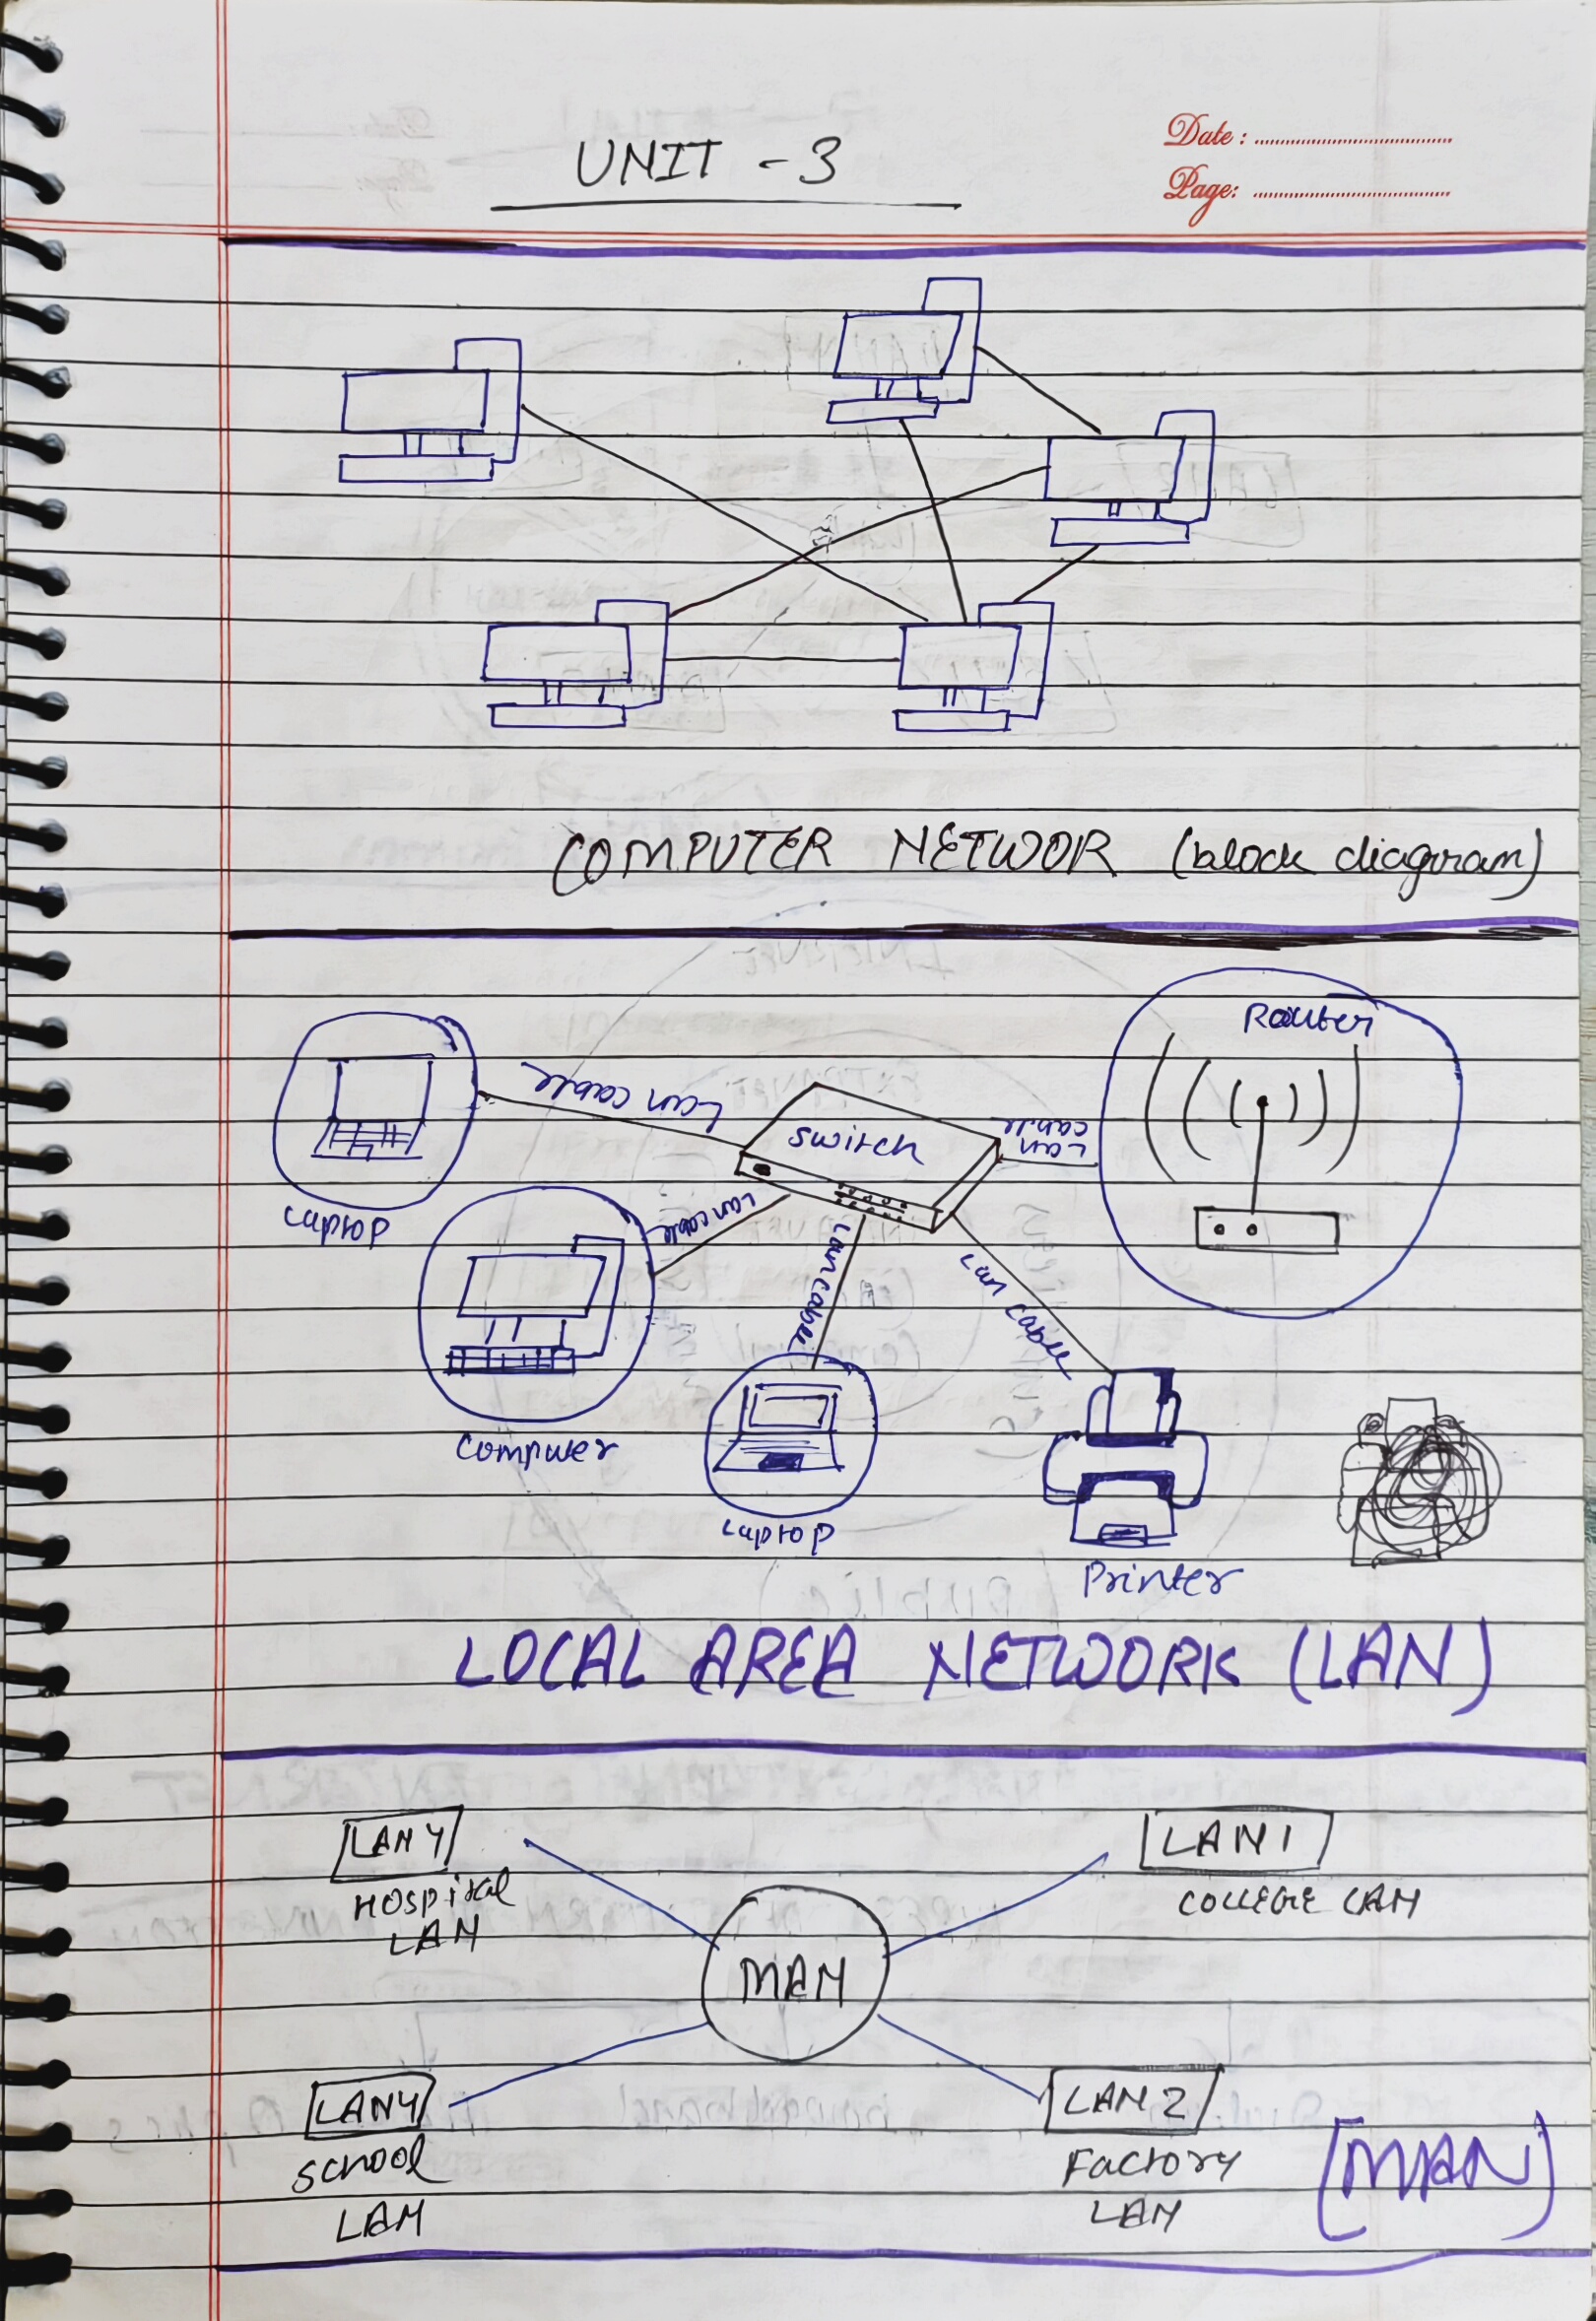 UNIT - 3
Date :
Page:
COMPUTER NETWOR (block diagram)
Router
Lan cable
switch
Lan cable
Laptop
Lan cable
Lan cable
Lan cable
computer
Laptop
Printer
LOCAL AREA NETWORK (LAN)
LAN 4
HOSPital
LAN
LAN 1
COLLEGE LAN
MAN
LAN4
SCHOOL
LAN
LAN 2
FACTORY
LAN
[MAN]